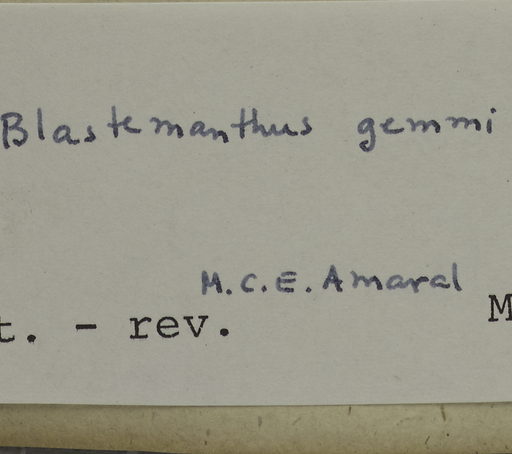 Blastemanthus gemmi
M.C.E. Amaral
t. - rev. M